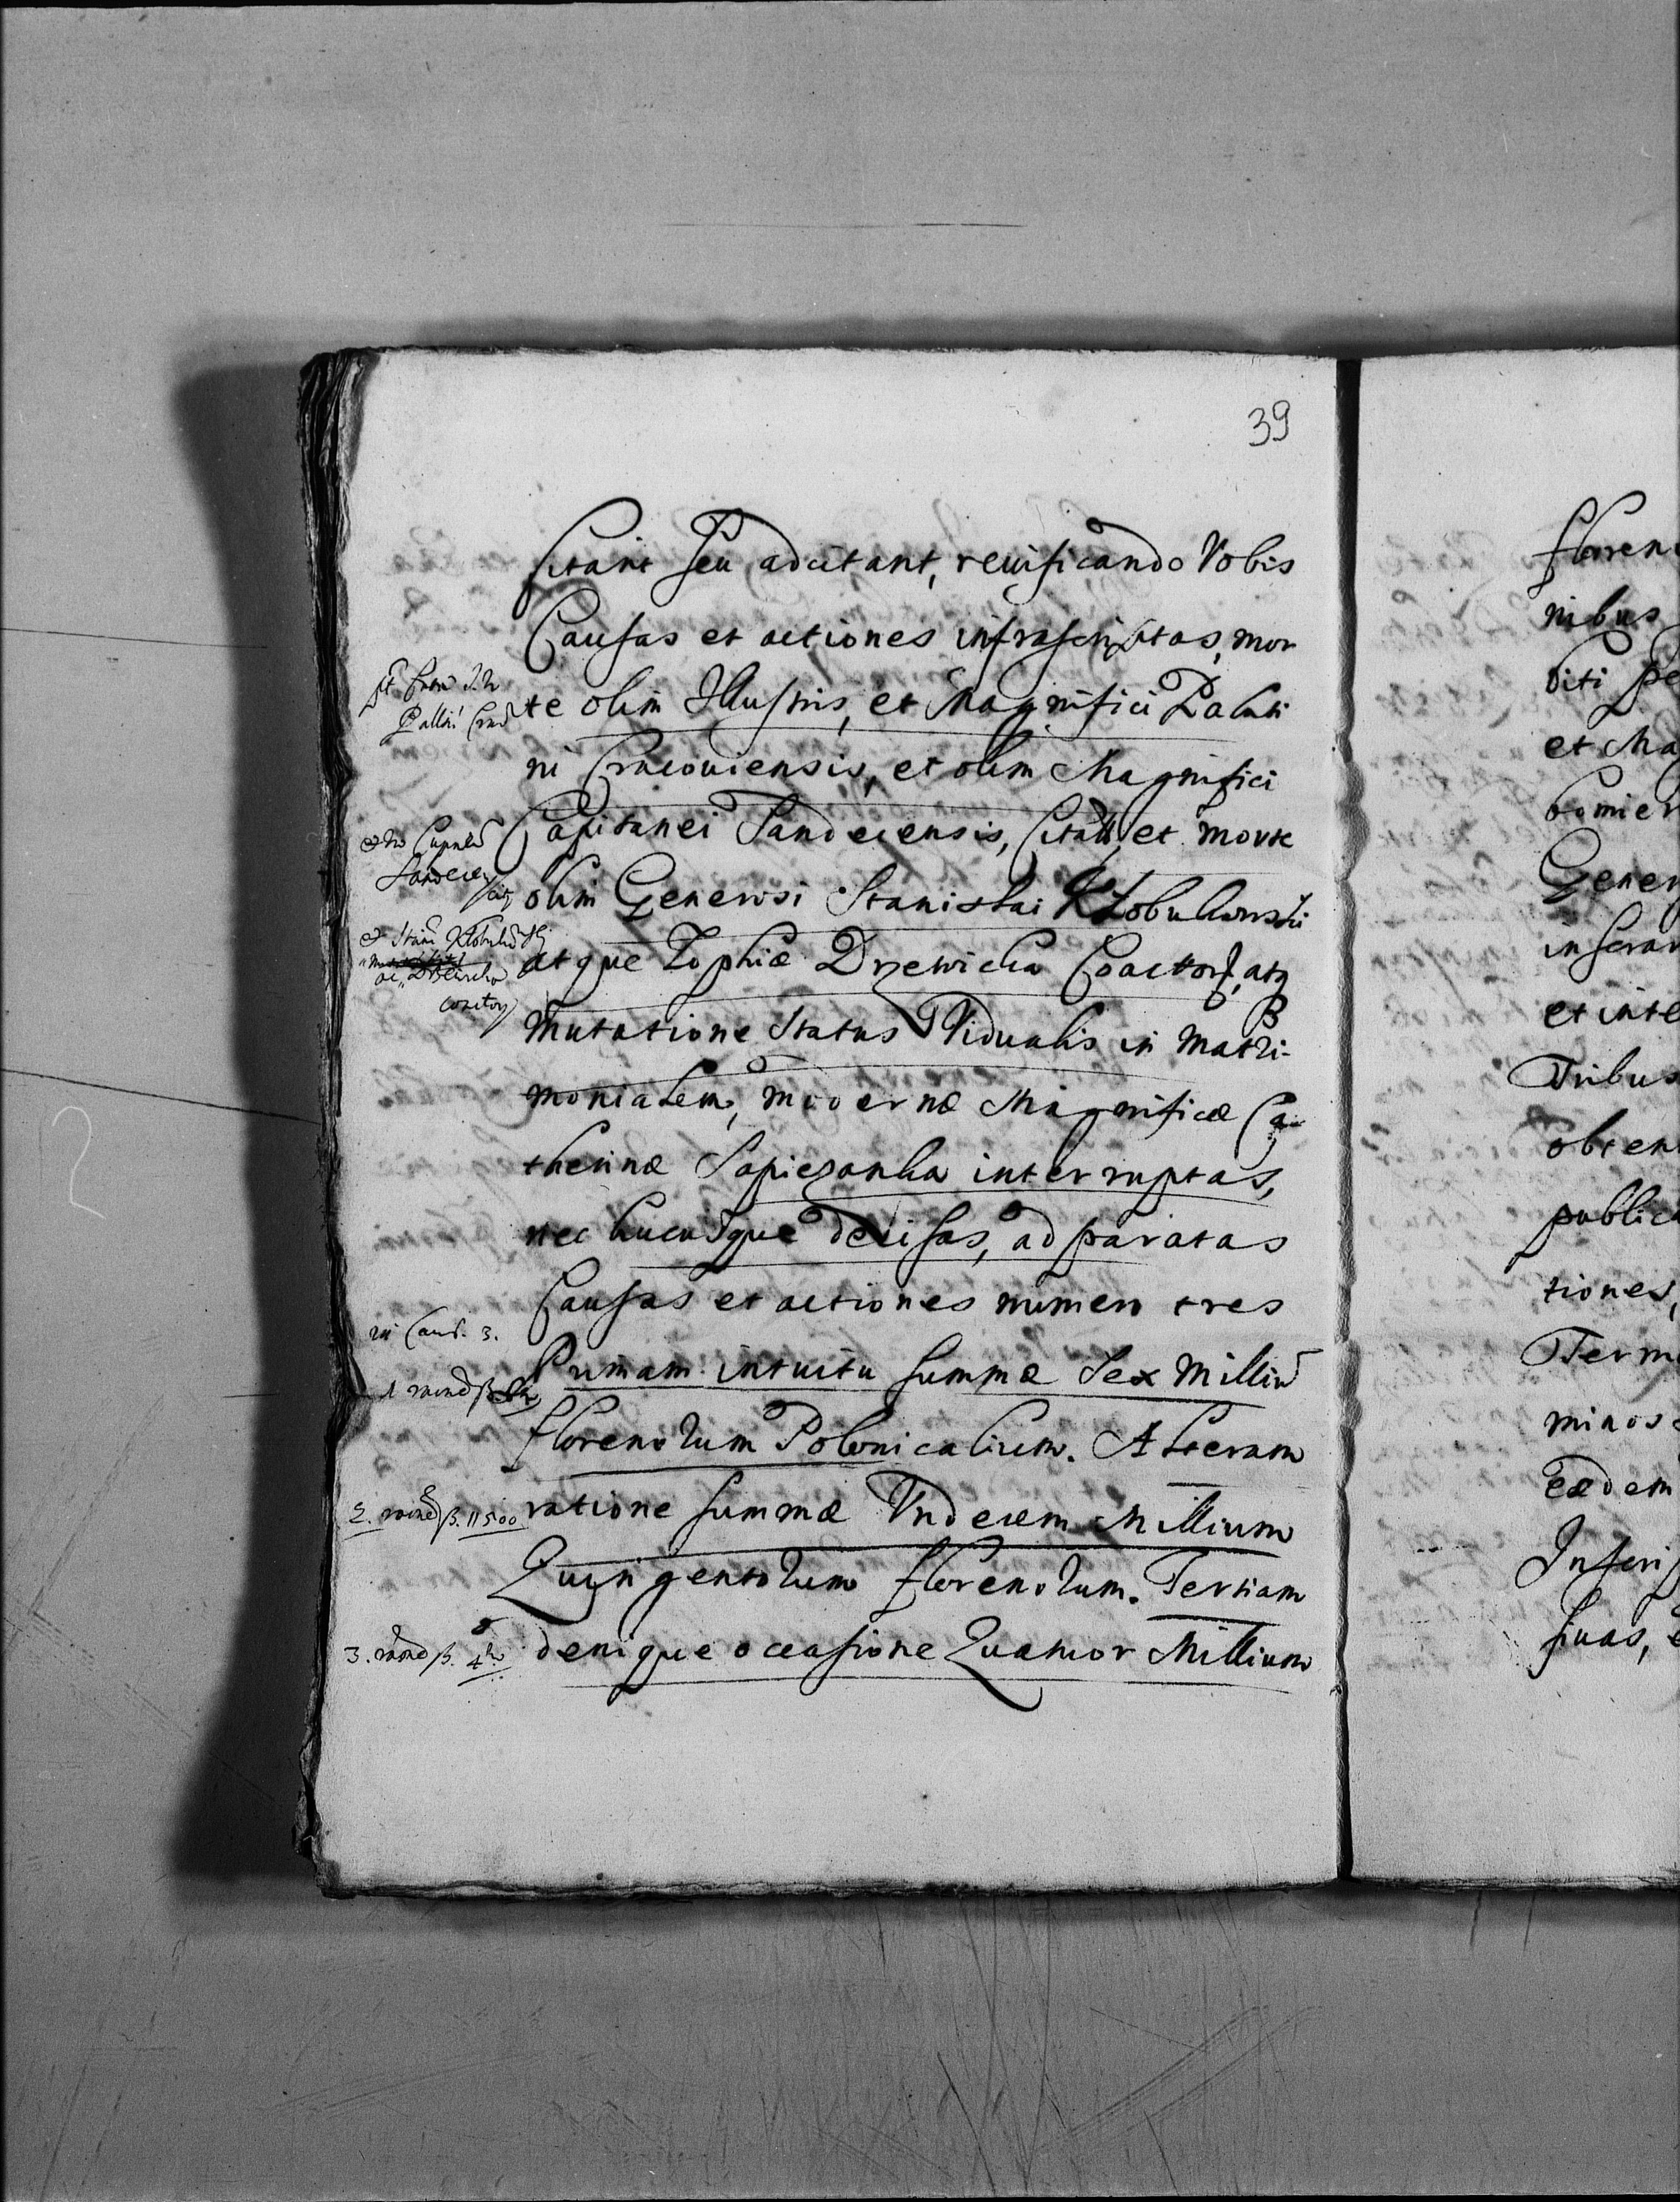 39
Citant seu adcitant, revificando Vobis
Causas et actiones infrascriptas, mor
te olim Illustris, et Magnifici Palati
ni Cracoviensis, et olim Magnifici
Capitanei Sandecensis, et morte
olim Generosi Stanislai Kłobukowski
atque Zophiæ Drzewicka Coactor, atq
Mutatione Status Vidualis in Matri-
monialem, modernæ Magnificæ Ca
therinæ Sapiezanka interruptas,
nec hucusque decisas, ad paratas
Causas et actiones numero tres
Primam intuitu summæ Sex Milliū
florenorum Polonicalium. Alteram
ratione summæ Undecem Millium
Quingentorum florenorum. Tertiam
denique occasione Quatuor Millium
Sandecen
3.
1
2. 11500
3.
floren
nibus
et Ma
Gener
et inte
Tribus
obten
public
tiones,
Termi
minos
Eædem
Inscrip
suas, e